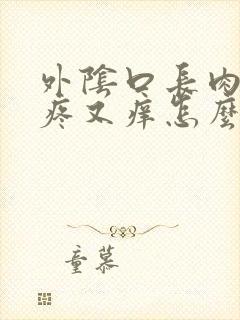 外陰口長肉
疼又痒怎麼
童慕